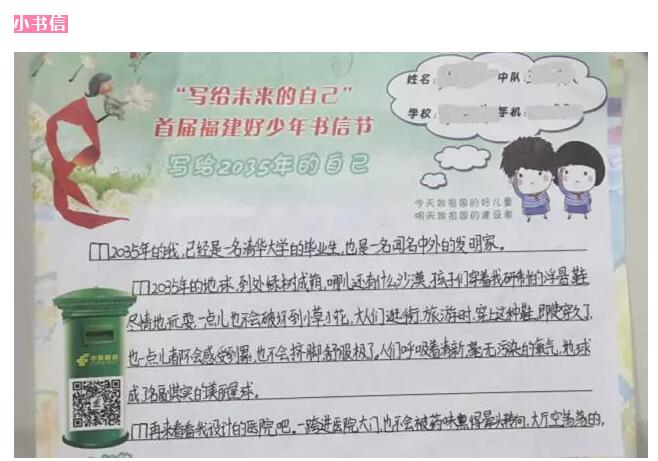 小书信
“写给未来的自己”
首届福建好少年书信节
写给2035年的自己
姓名: 中队:
学校: 手机:
今天做祖国的好儿童
明天做祖国的建设者
2035年的我,已经是一名清华大学的毕业生,也是一名闻名中外的发明家。
2035年的地球,到处绿树成荫,哪儿还有什么沙漠,孩子们穿着我研制的浮悬鞋
尽情地玩耍,一点儿也不会破坏到小草小花,大人们逛街,旅游时,穿上这种鞋,即使穿久了,
也一点儿都不会感受到累,也不会挤脚舒服极了。人们呼吸着清新,毫无污染的氧气,地球
成了名副其实的美丽星球。
再来看看我设计的医院吧。一跨进医院大门,也不会被药味熏得晕头转向,大厅空荡荡的,
中国邮政